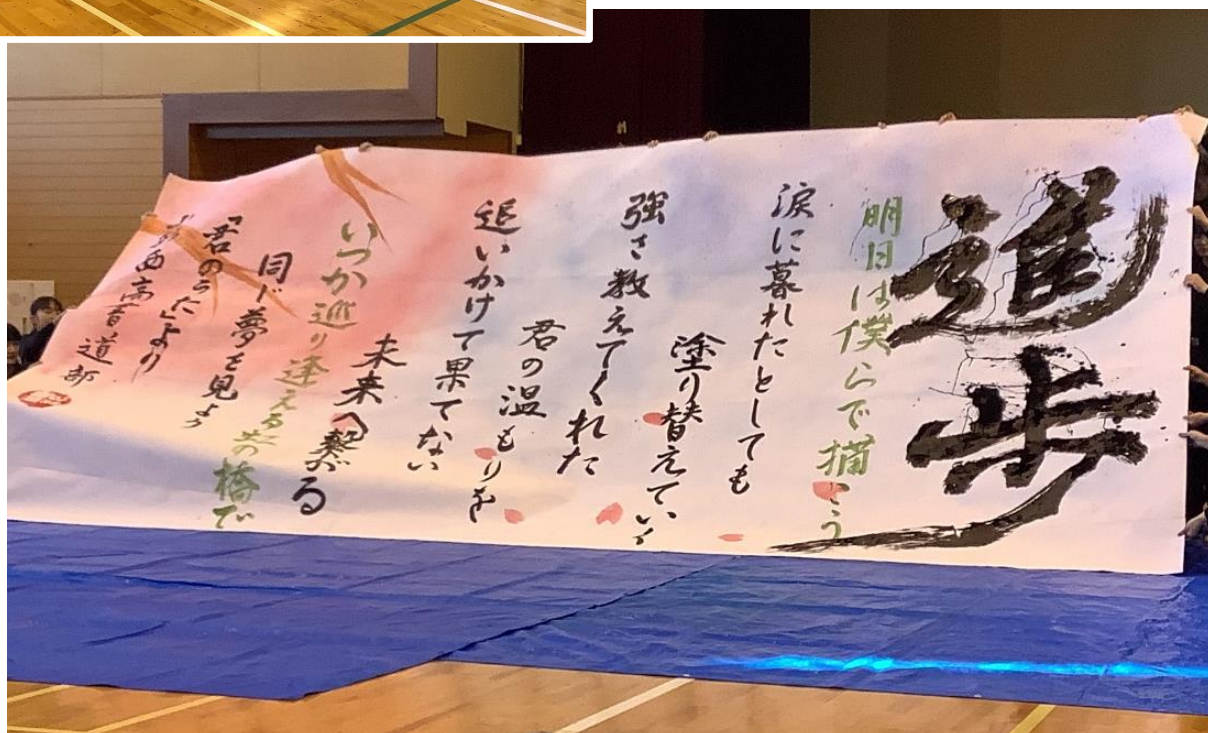 進歩
明日は僕らで描こう
涙に暮れたとしても
塗り替えていく
強さ教えてくれた
君の温もりを
追いかけて果てない
未来へ繋がる
いつか巡り逢えるあの橋で
同じ夢を見よう
君のうた」より
西高書道部